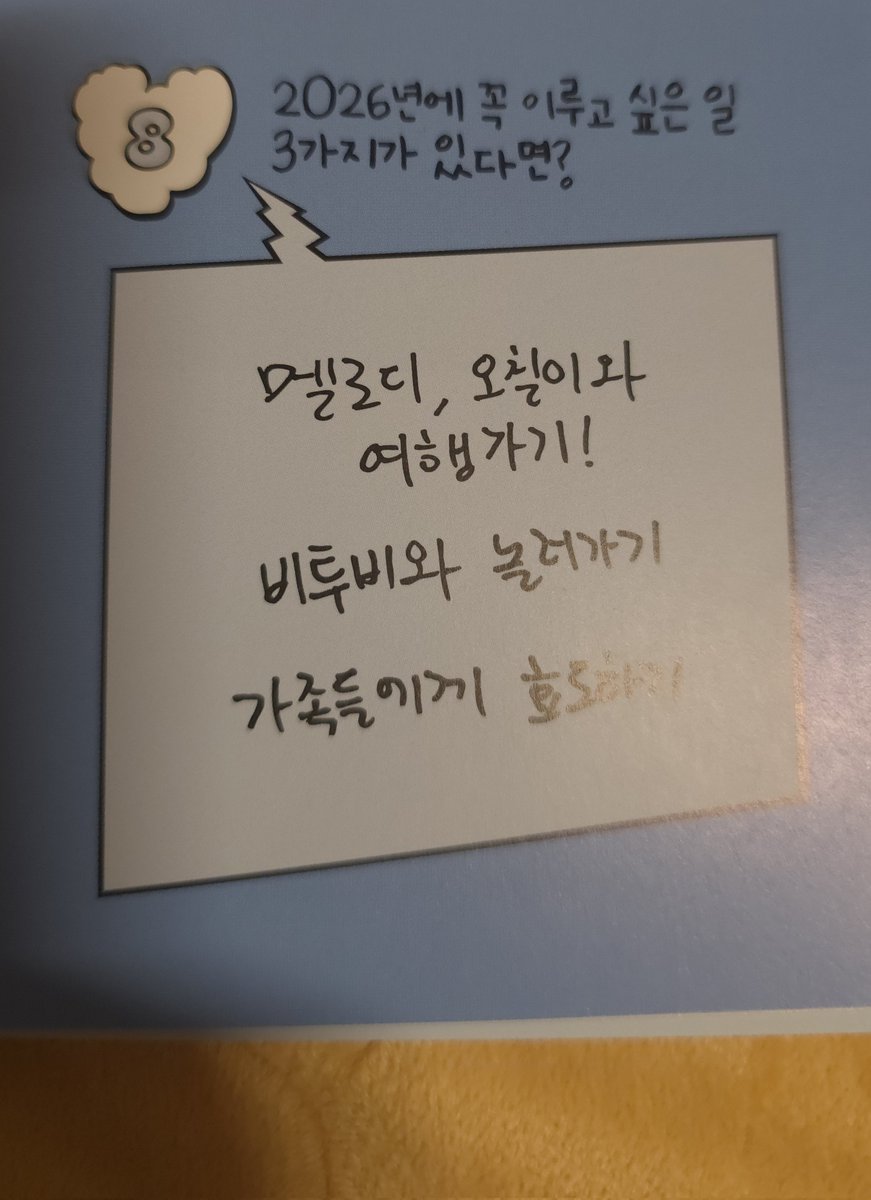 8
2026년에 꼭 이루고 싶은 일
3가지가 있다면?
멜로디, 오칠이와
여행가기!
비투비와 놀러가기
가족들에게 효도하기